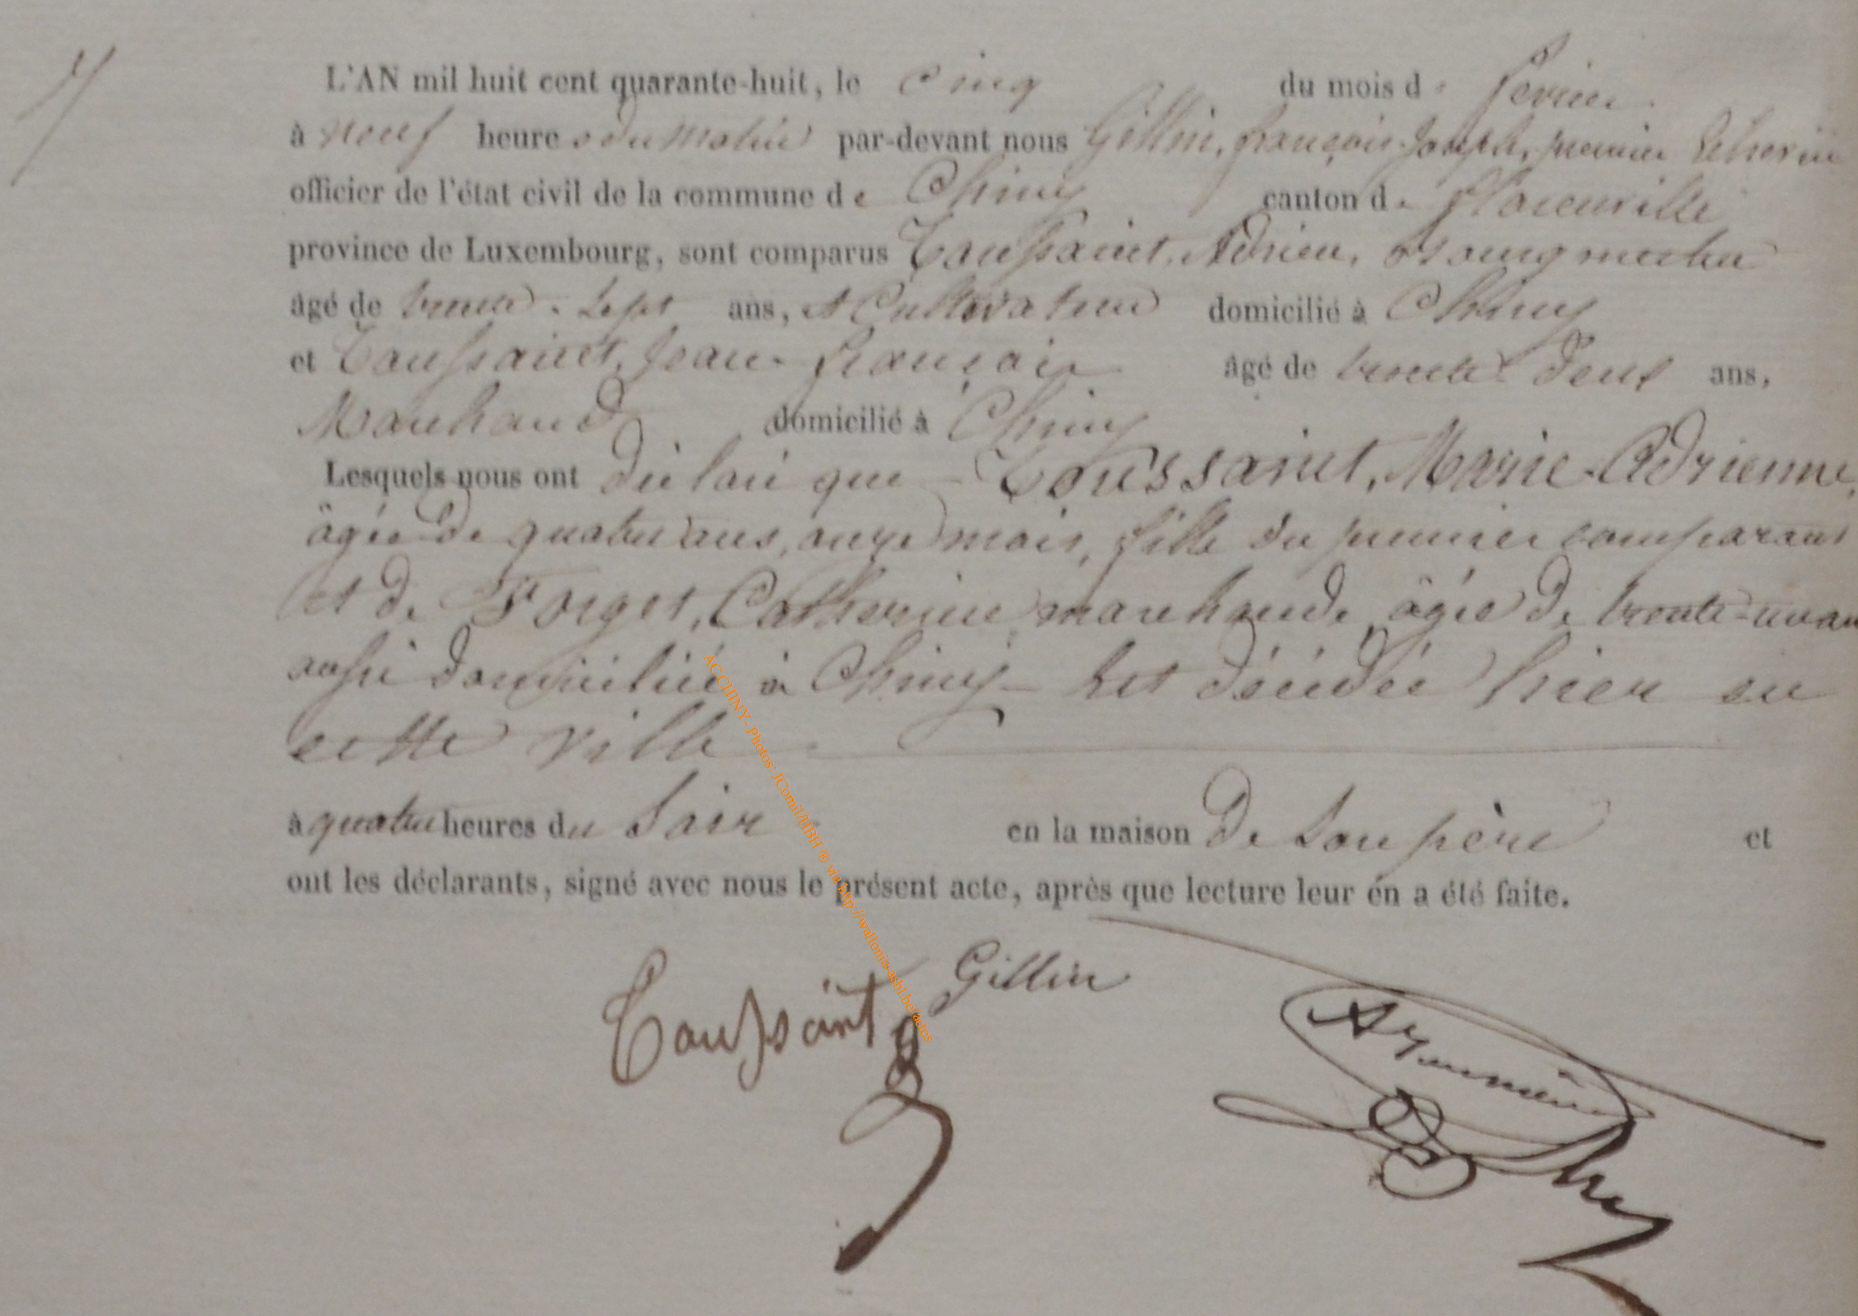 7
L'AN mil huit cent quarante-huit, le cinq du mois de fevrier
à neuf heures du matin par-devant nous Gillin, françois Joseph, premier Echevin
officier de l'état civil de la commune de Chiny canton de florenville
province de Luxembourg, sont comparus Toussaint, Adrien,
âgé de trente-sept ans, et Cultivateur domicilié à Chiny
et Toussaint, Jean-françois âgé de trente deux ans,
Marchand domicilié à Chiny
Lesquels nous ont déclaré que – Toussaint, Marie-Adrienne,
âgée de quatre ans, onze mois, fille du premier comparant
et de Forget, Catherine, marchande, âgée de trente-un ans
aussi domiciliée à Chiny – Est décédée hier en
cette ville
à quatre heures du Soir en la maison De Son père et
ont les déclarants, signé avec nous le présent acte, après que lecture leur en a été faite.
Toussaint Gillin
ACCHINY- Photos- JComil/tfBH ©